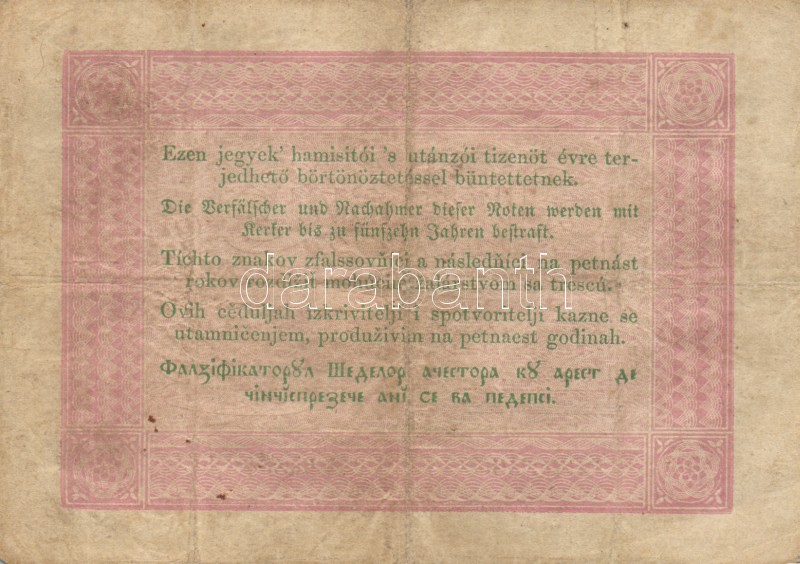 Ezen jegyek' hamisitói 's utánzói tizenöt évre ter-
jedhető börtönöztetéssel büntettetnek.
Die Verfälscher und Nachahmer dieser Noten werden mit
Kerker bis zu fünfzehn Jahren bestraft.
Tíchto znakov zfalssovňíci a následňíci na petnást
rokov
sa trescú.
darabanth
Ovih cèduljah izkrivitelji i spotvoritelji kazne se
utamničenjem, produživim na petnaest godinah.
Фалзіфікаторꙋл Шеделор ачестора кꙋ арест де
чінчіспрезече ані се ва педепсі.